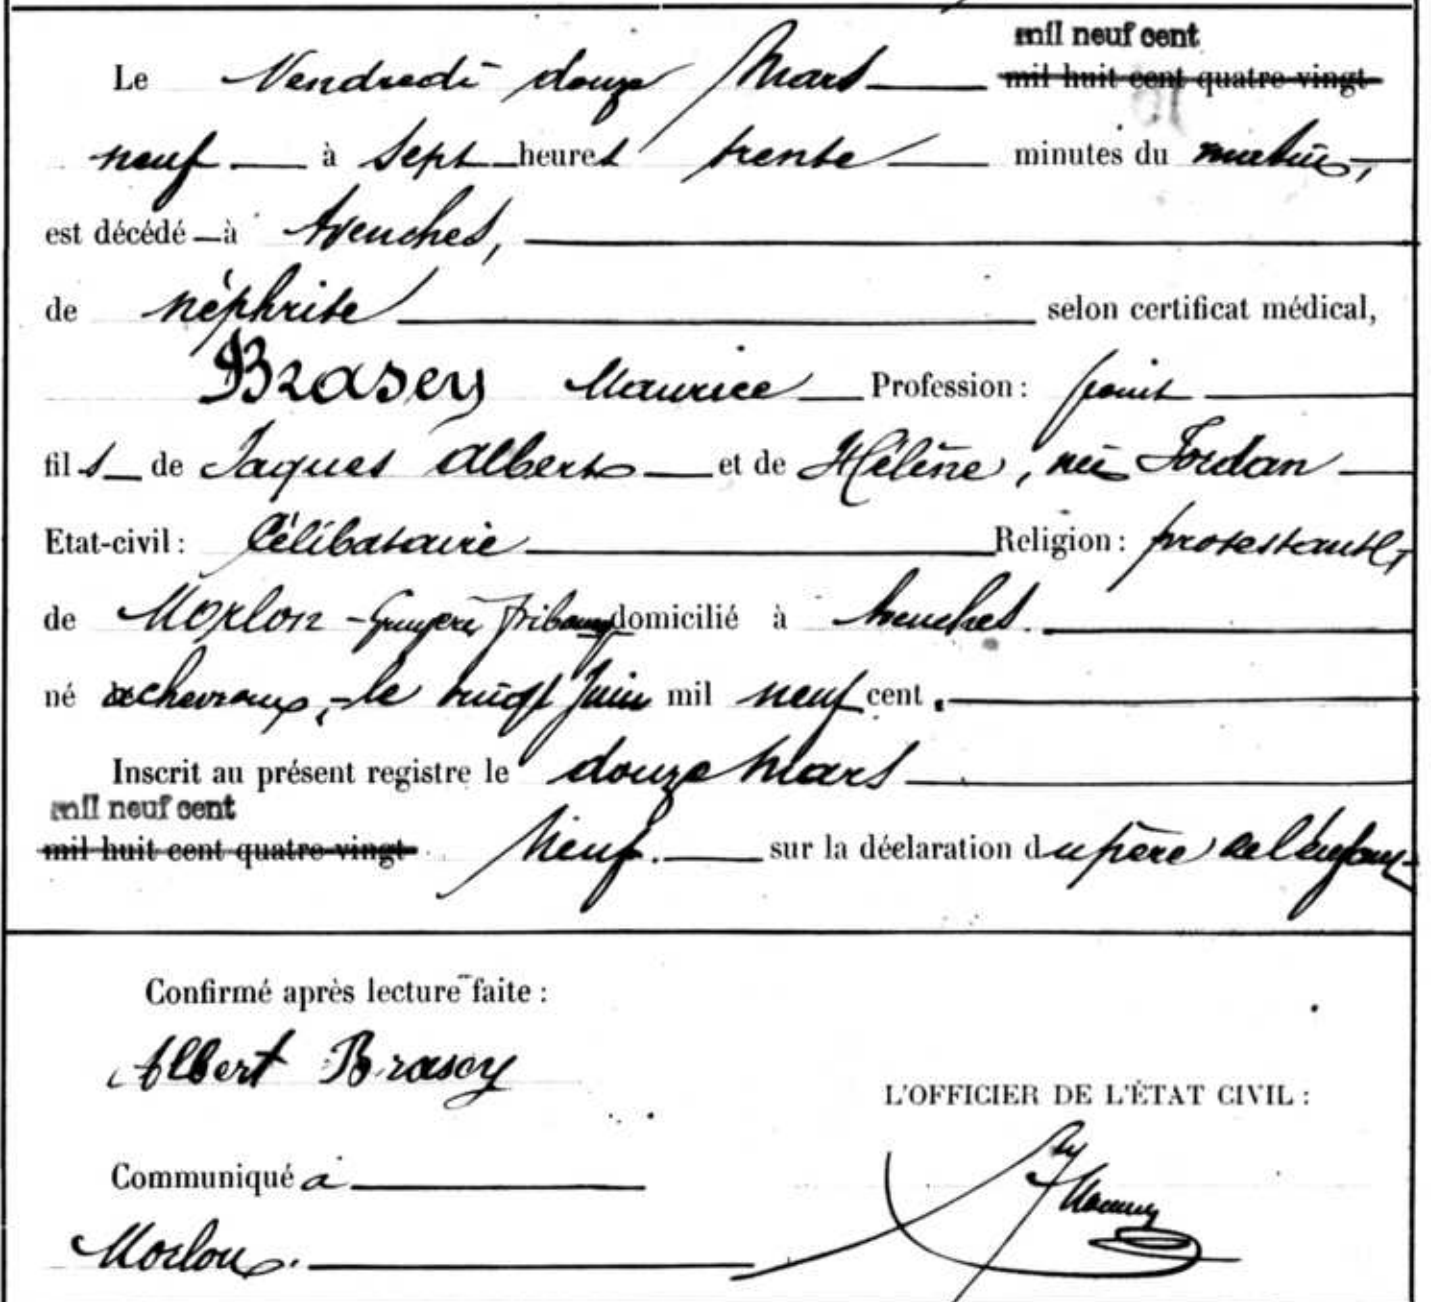 mil neuf cent
Le Vendredi douze Mars mil huit cent quatre-vingt
neuf à sept heures trente minutes du matin,
est décédé à Avenches,
de néphrite selon certificat médical,
Brasey Maurice Profession:
fils de Jaques Albert et de Hélène, née Jordan
Etat-civil: Célibataire Religion: protestante
de Morlon - Gruyère Fribourg domicilié à Avenches.
né à chevroux, le vingt Juin mil neuf cent,
Inscrit au présent registre le douze Mars
mil neuf cent
mil huit cent quatre-vingt Neuf. sur la déclaration du père de l'enfant
Confirmé après lecture faite:
Albert Brasey
L'OFFICIER DE L'ÉTAT CIVIL:
Communiqué à
Morlon.